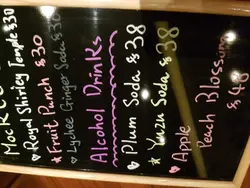 Royal Shirley Temple $30
Fruit Punch $30
Lychee Ginger Soda $30
Alcohol Drinks
Plum Soda $38
Yuzu Soda $38
Apple
Peach Blossom